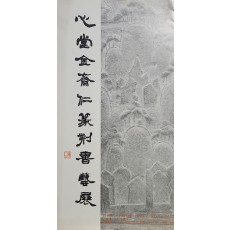 心堂金齋仁篆刻書藝展